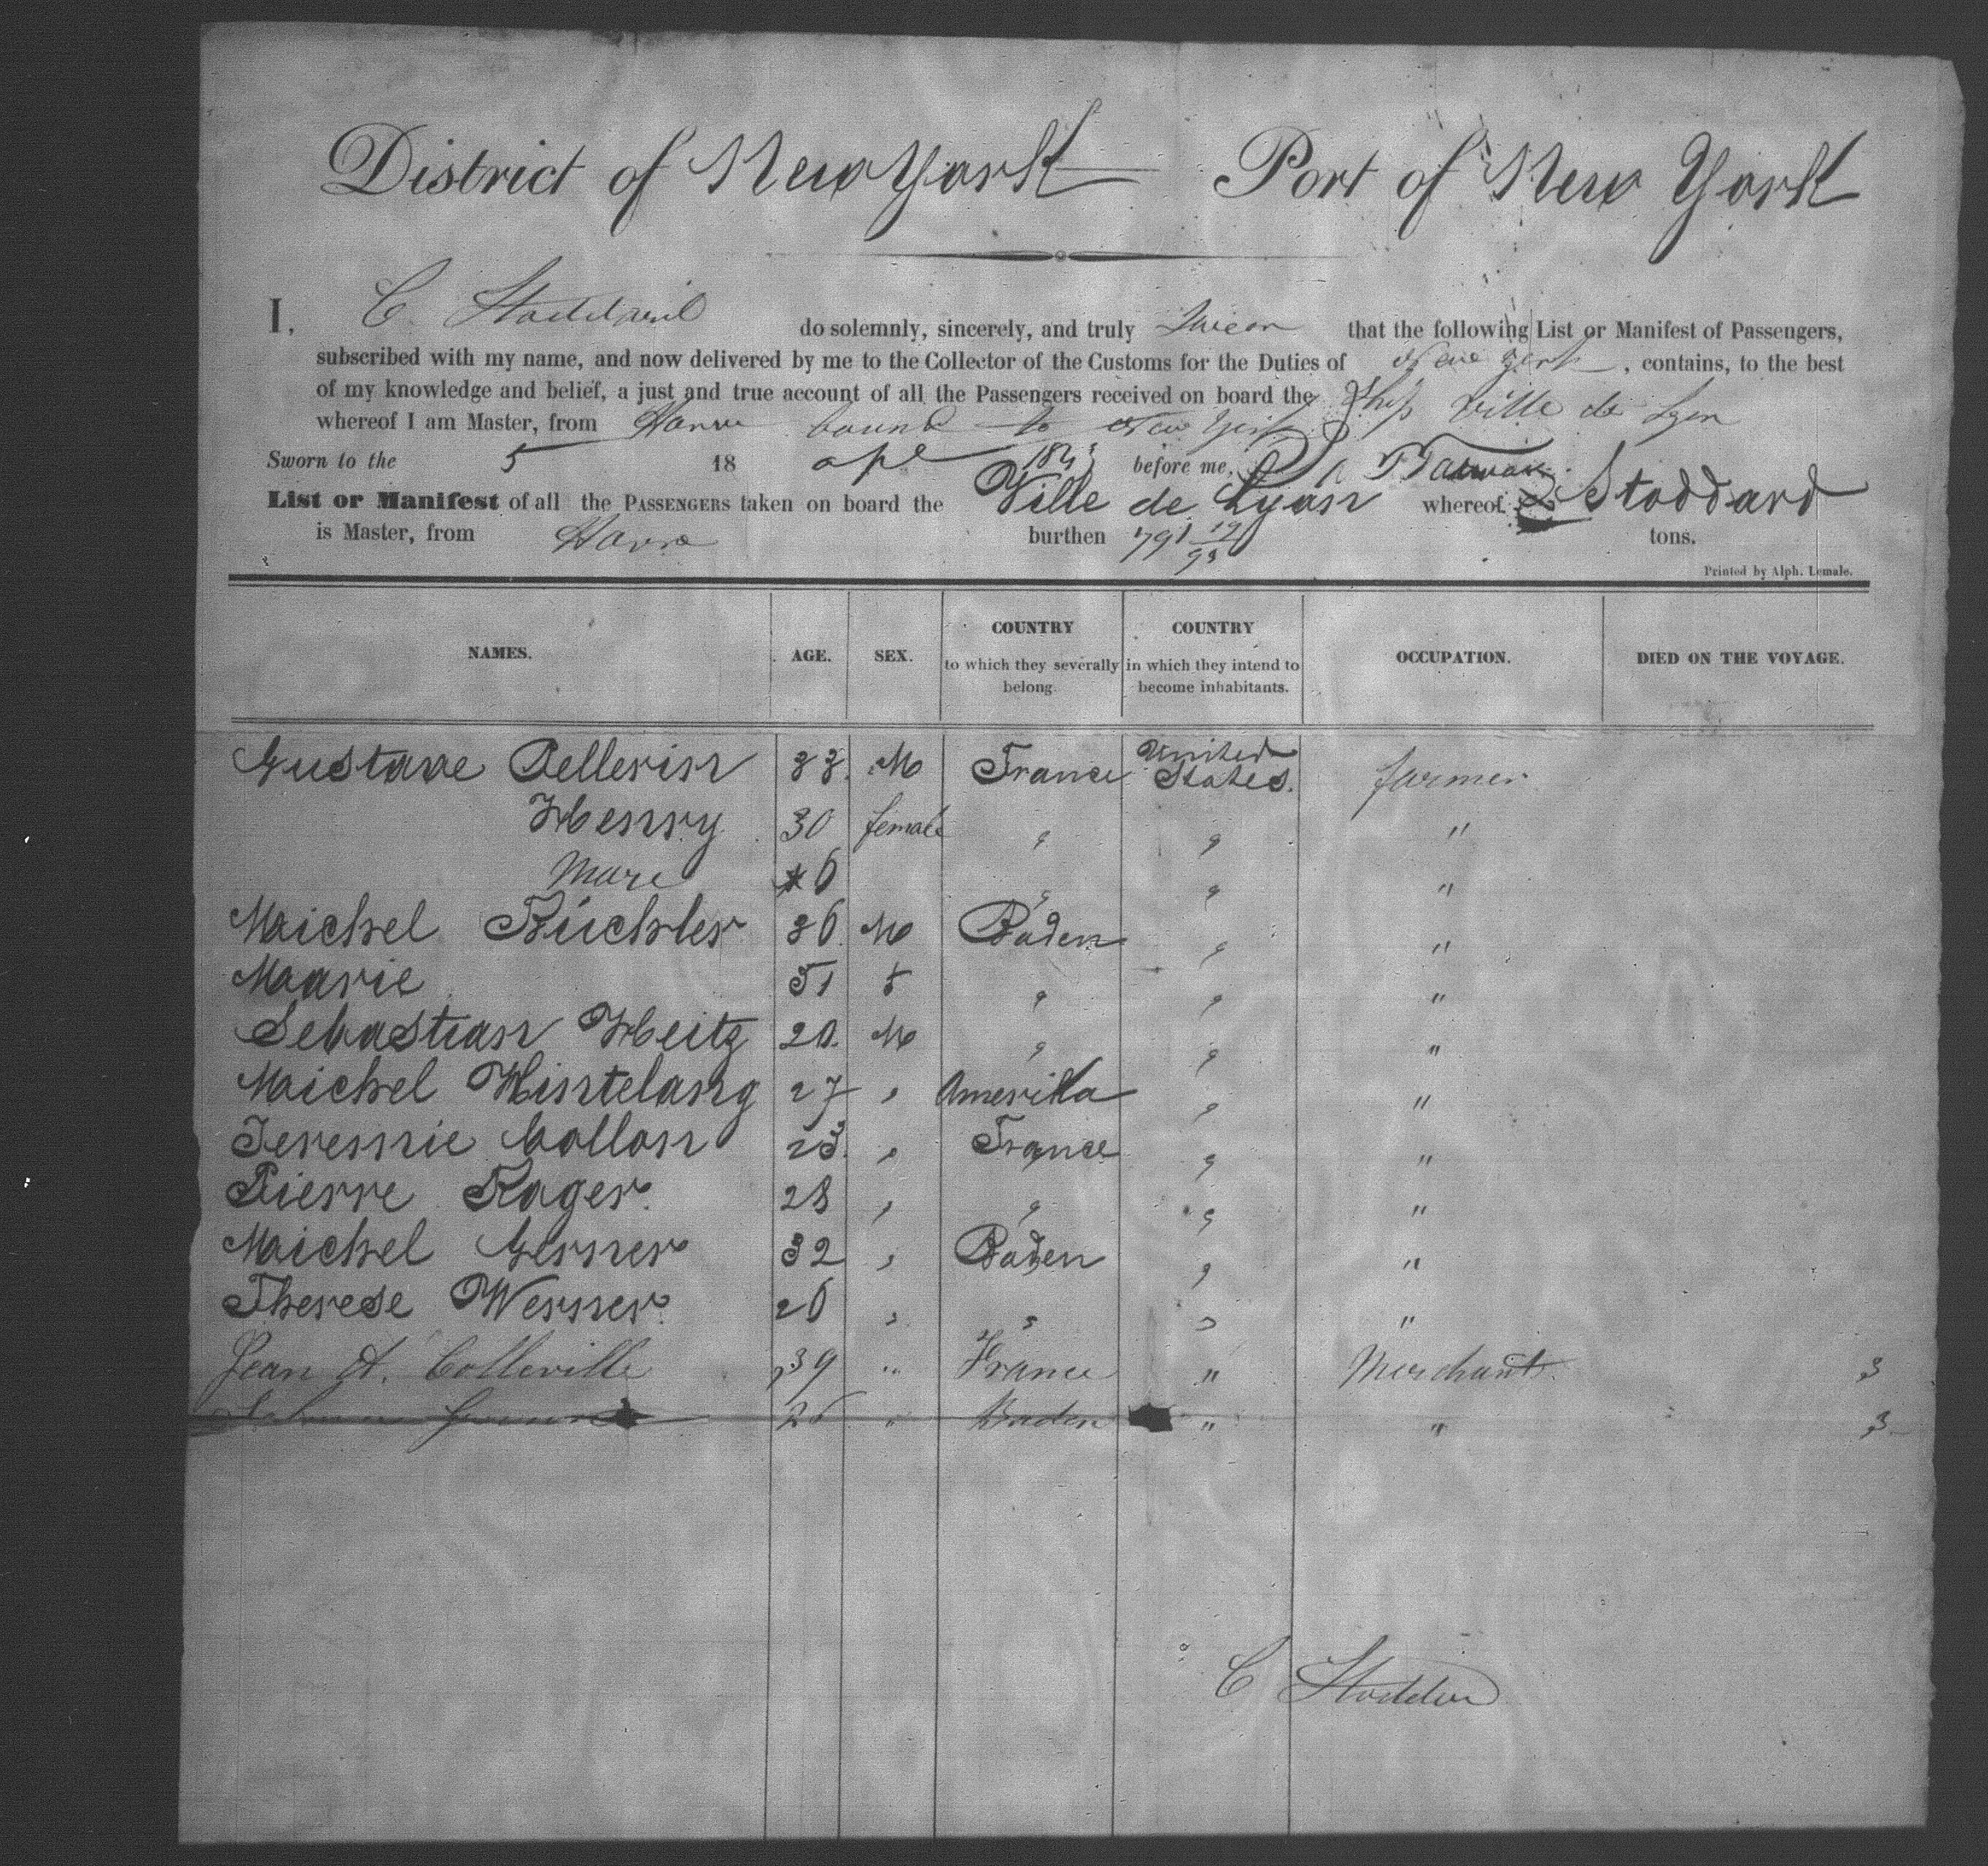 District of New York Port of New York
I, C Stoddard do solemnly, sincerely, and truly Swear that the following List or Manifest of Passengers,
subscribed with my name, and now delivered by me to the Collector of the Customs for the Duties of New York, contains, to the best
of my knowledge and belief, a just and true account of all the Passengers received on board the Ship Ville de Lyon
whereof I am Master, from Havre bound to New York
Sworn to the 5 18 apl 1843 before me,
List or Manifest of all the PASSENGERS taken on board the Ville de Lyon whereof Stoddard
is Master, from Havre burthen 791 12/95 tons.
Printed by Alph. Lemale.
NAMES. AGE. SEX. COUNTRY to which they severally belong. COUNTRY in which they intend to become inhabitants. OCCUPATION. DIED ON THE VOYAGE.
Gustave Pellerin 33. M France United States. farmer
Henry 30 female " " "
Marc 6 " " "
Michel Büchler 36 M Baden " "
Marie 51 f " " "
Sebastian Heitz 20. M " " "
Michel Hintelang 27 " Amerika " "
Jeremie Collon 23. " France " "
Pierre Roger. 28 " " " "
Michel Gerner 32 " Baden " "
Therese Werner. 26 " " " "
Jean A. Colleville 39 " France " Merchant. 3
26 " Baden " " 3
C Stoddard